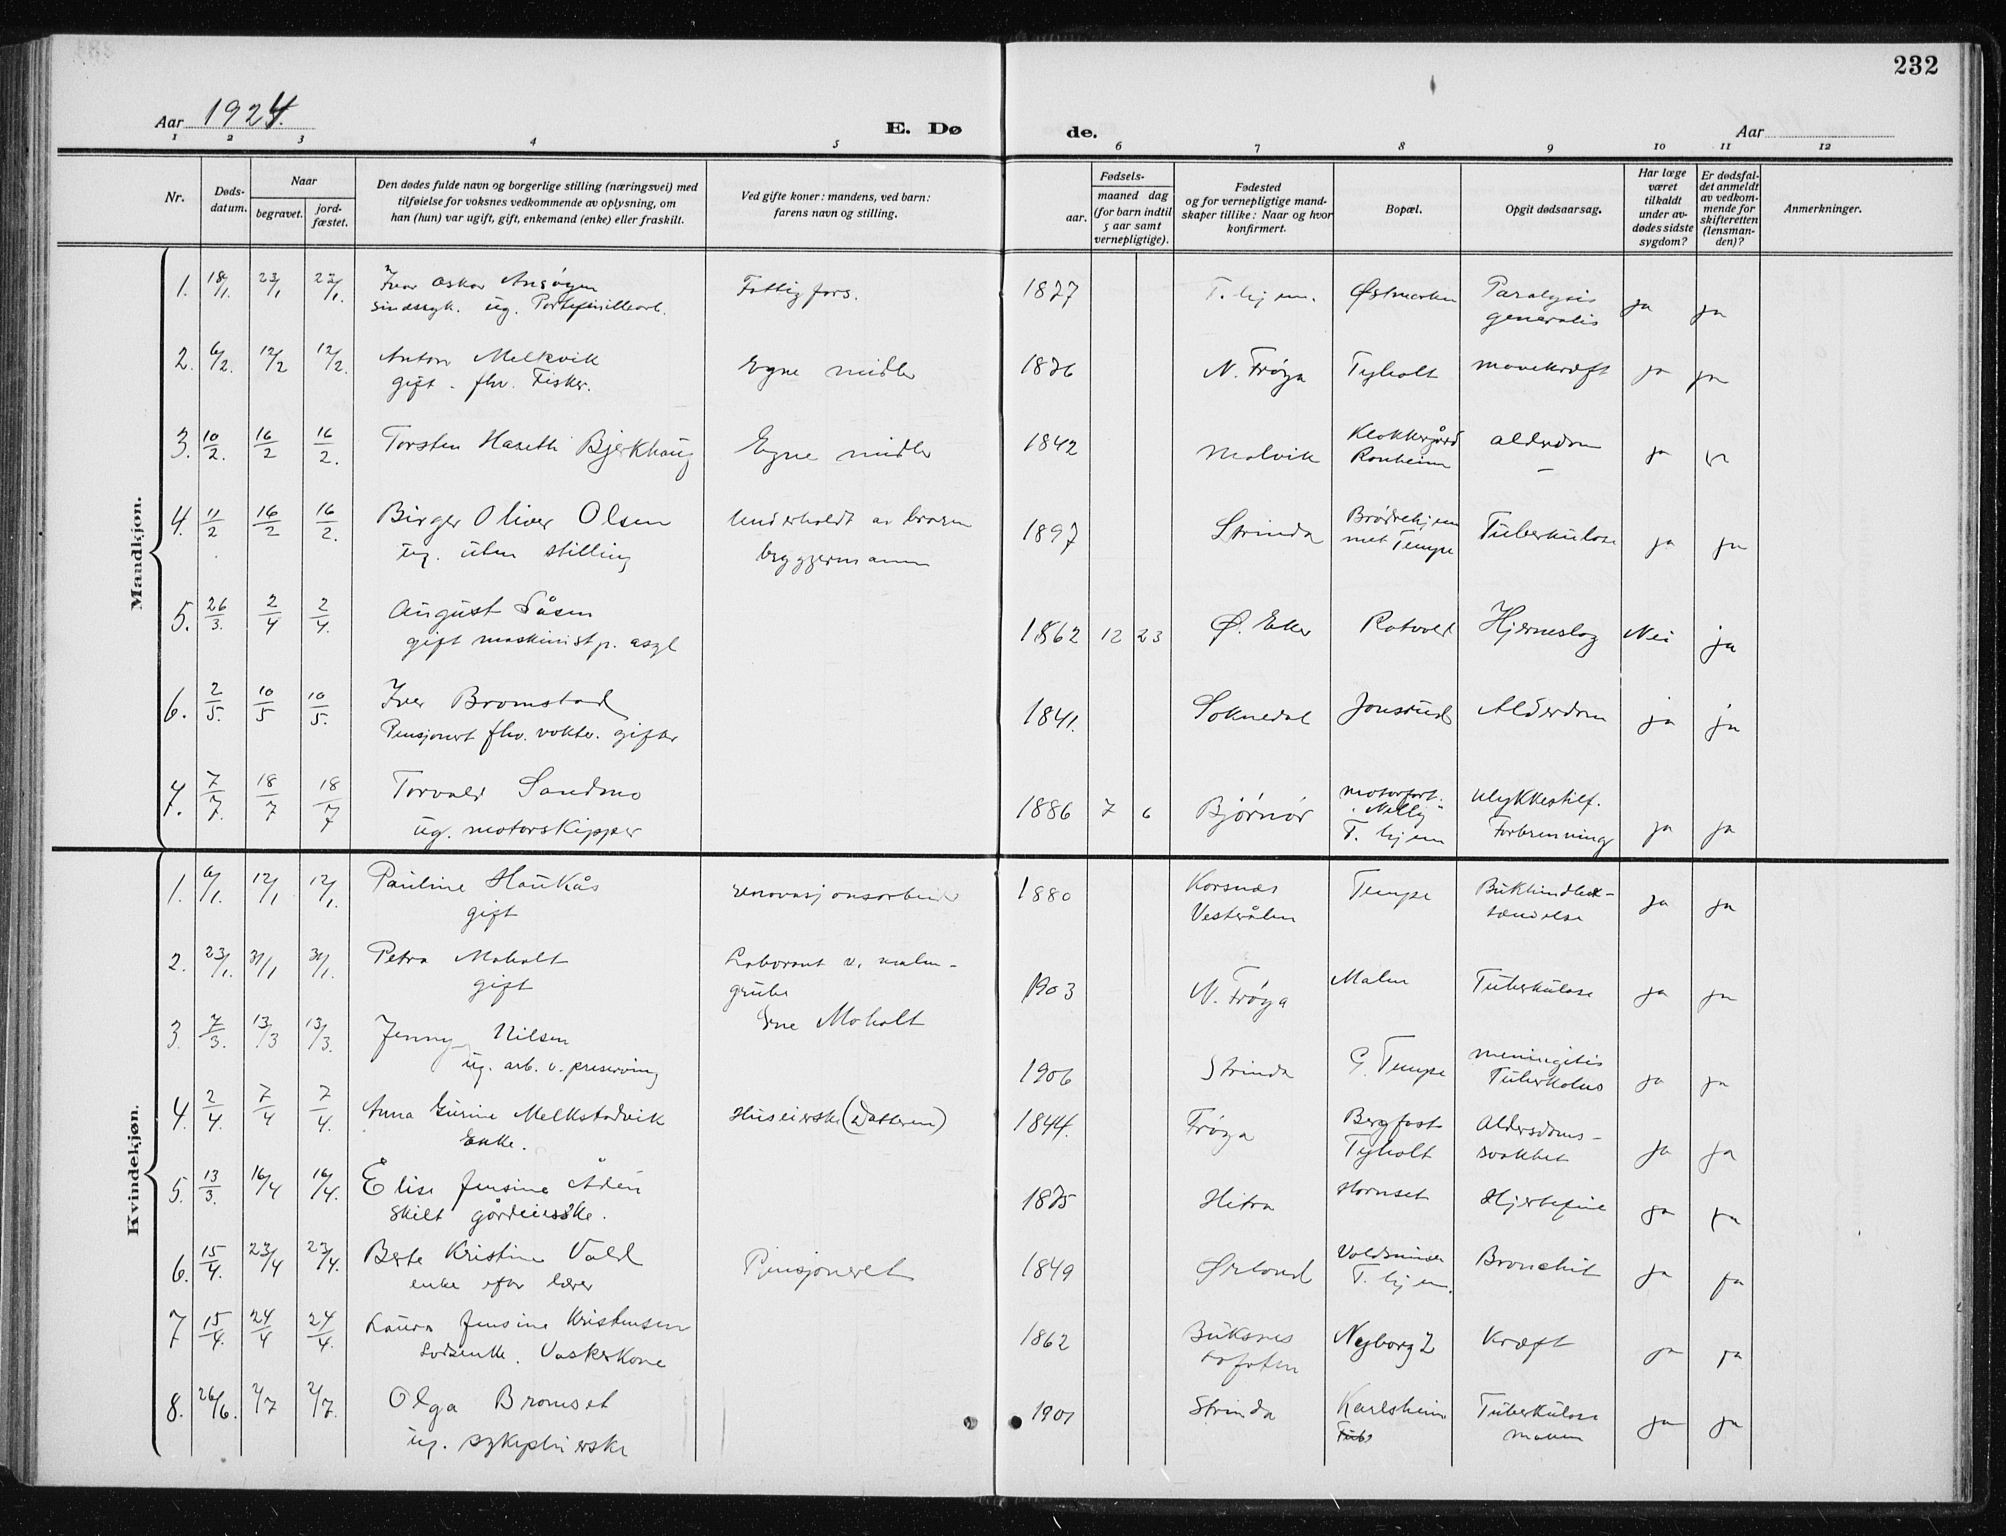 232
Aar 1924.
E. Dø de.
Aar
1 2 3 4 5 6 7 8 9 10 11 12
Nr.
Døds-
datum.
Naar
begravet.
jord-
fæstet.
Den dødes fulde navn og borgerlige stilling (næringsvei) med
tilføielse for voksnes vedkommende av oplysning, om
han (hun) var ugift, gift, enkemand (enke) eller fraskilt.
Ved gifte koner: mandens, ved barn:
farens navn og stilling.
Fødsels-
aar.
maaned dag
(for barn indtil
5 aar samt
vernepligtige).
Fødested
og for vernepligtige mand-
skaper tillike: Naar og hvor
konfirmert.
Bopæl.
Opgit dødsaarsag.
Har læge
været
tilkaldt
under av-
dødes sidste
sygdom?
Er dødsfal-
det anmeldt
av vedkom-
mende for
skifteretten
(lensman-
den)?
Anmerkninger.
Mandkjøn.
1. 18/1. 23/1 23/1. Ivar Oskar Fattigfors. T. hjem. Østmarken Paralysis ja ja
sindssyk. ug. generalis
2. 6/2. 12/2 12/2. Anton Melkvik Egne midler 1876 N. Frøya Tyholt mavekræft ja ja
gift. fhv. Fisker.
3. 10/2. 16/2 16/2. Torsten Hareth Bjerkhaug Egne midler 1842 Malvik Klokkergård alderdom ja ja
Ronheim
4. 11/2 16/2 16/2. Birger Oliver Olsen Underholdt av broren 1897 Strinda Brødrehjem Tuberkulose ja ja
ug. uten stilling bryggermann met Tempe
5. 26/3. 2/4 2/4. August Såsen 1862 12 23 Ø. Eker Rotvoll Hjerneslag Nei ja
gift maskinist p. asyl
6. 2/5. 10/5 10/5. Iver Bromstad 1841. Soknedal Jonsrud Alderdom ja ja
Pensjonert fhv. vokter. gift
7. 7/7. 18/7 18/7 Torvald Sandmo 1886 7 6 Bjørnør motorfart. Ulykkestilf. ja ja
ug. motorskipper "Nelly" Forbrenning
T. hjem
Kvindekjøn.
1. 6/1. 12/1 12/1. Pauline Haukås renovasjonsarbeider 1880 Korsnes Tempe ja ja
gift Vesterålen
2. 23/1. 31/1 31/1. Petra Moholt Laborant v. malm- 1903 N. Frøya Malm Tuberkulose ja ja
gift grube
Moholt
3. 7/3. 13/3 13/3. Jenny Nilsen 1906 Strinda G. Tempe meningitis ja ja
ug. arb. v. preserving Tuberkulos
4. 2/4. 7/4 7/4. Anna Gurine Melkstadvik Huseierske (Datteren) 1844. Frøya Bergfast Alderdoms- ja ja
Enke. Tyholt svakhet
5. 13/3. 16/4 16/4. Elise Jensine Åden 1875 Hitra Hornset Hjertefeil ja ja
skilt gårdeierske.
6. 15/4. 23/4 23/4. Berte Kristine Vold Pensjoneret 1849 Ørland Voldsminde Bronchit ja ja
enke efter lærer T. hjem.
7 15/4. 24/4 24/4. Laura Jensine Kristensen 1862 Buksnes Nyborg 2 Kræft ja ja
Losenke. Vaskekone Lofoten
8. 26/6. 2/7 2/7. Olga Bromset 1901 Strinda Karlsheim Tuberkulose ja ja
ug. sykepleierske